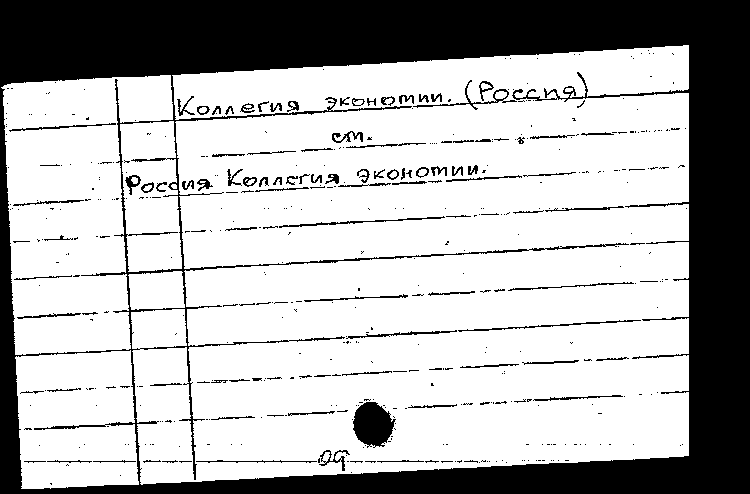 Коллегия экономии. (Россия)
см.
Россия Коллегия экономии.